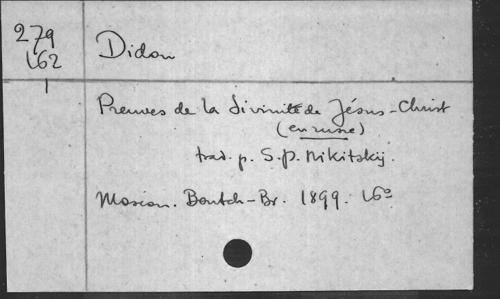 279
L62
1
Didon
Preuves de la divinité de Jésus-Christ
(en russe)
trad. p. S.P. Nikitskij.
Moscou. Boutch-Br. 1899. 16º